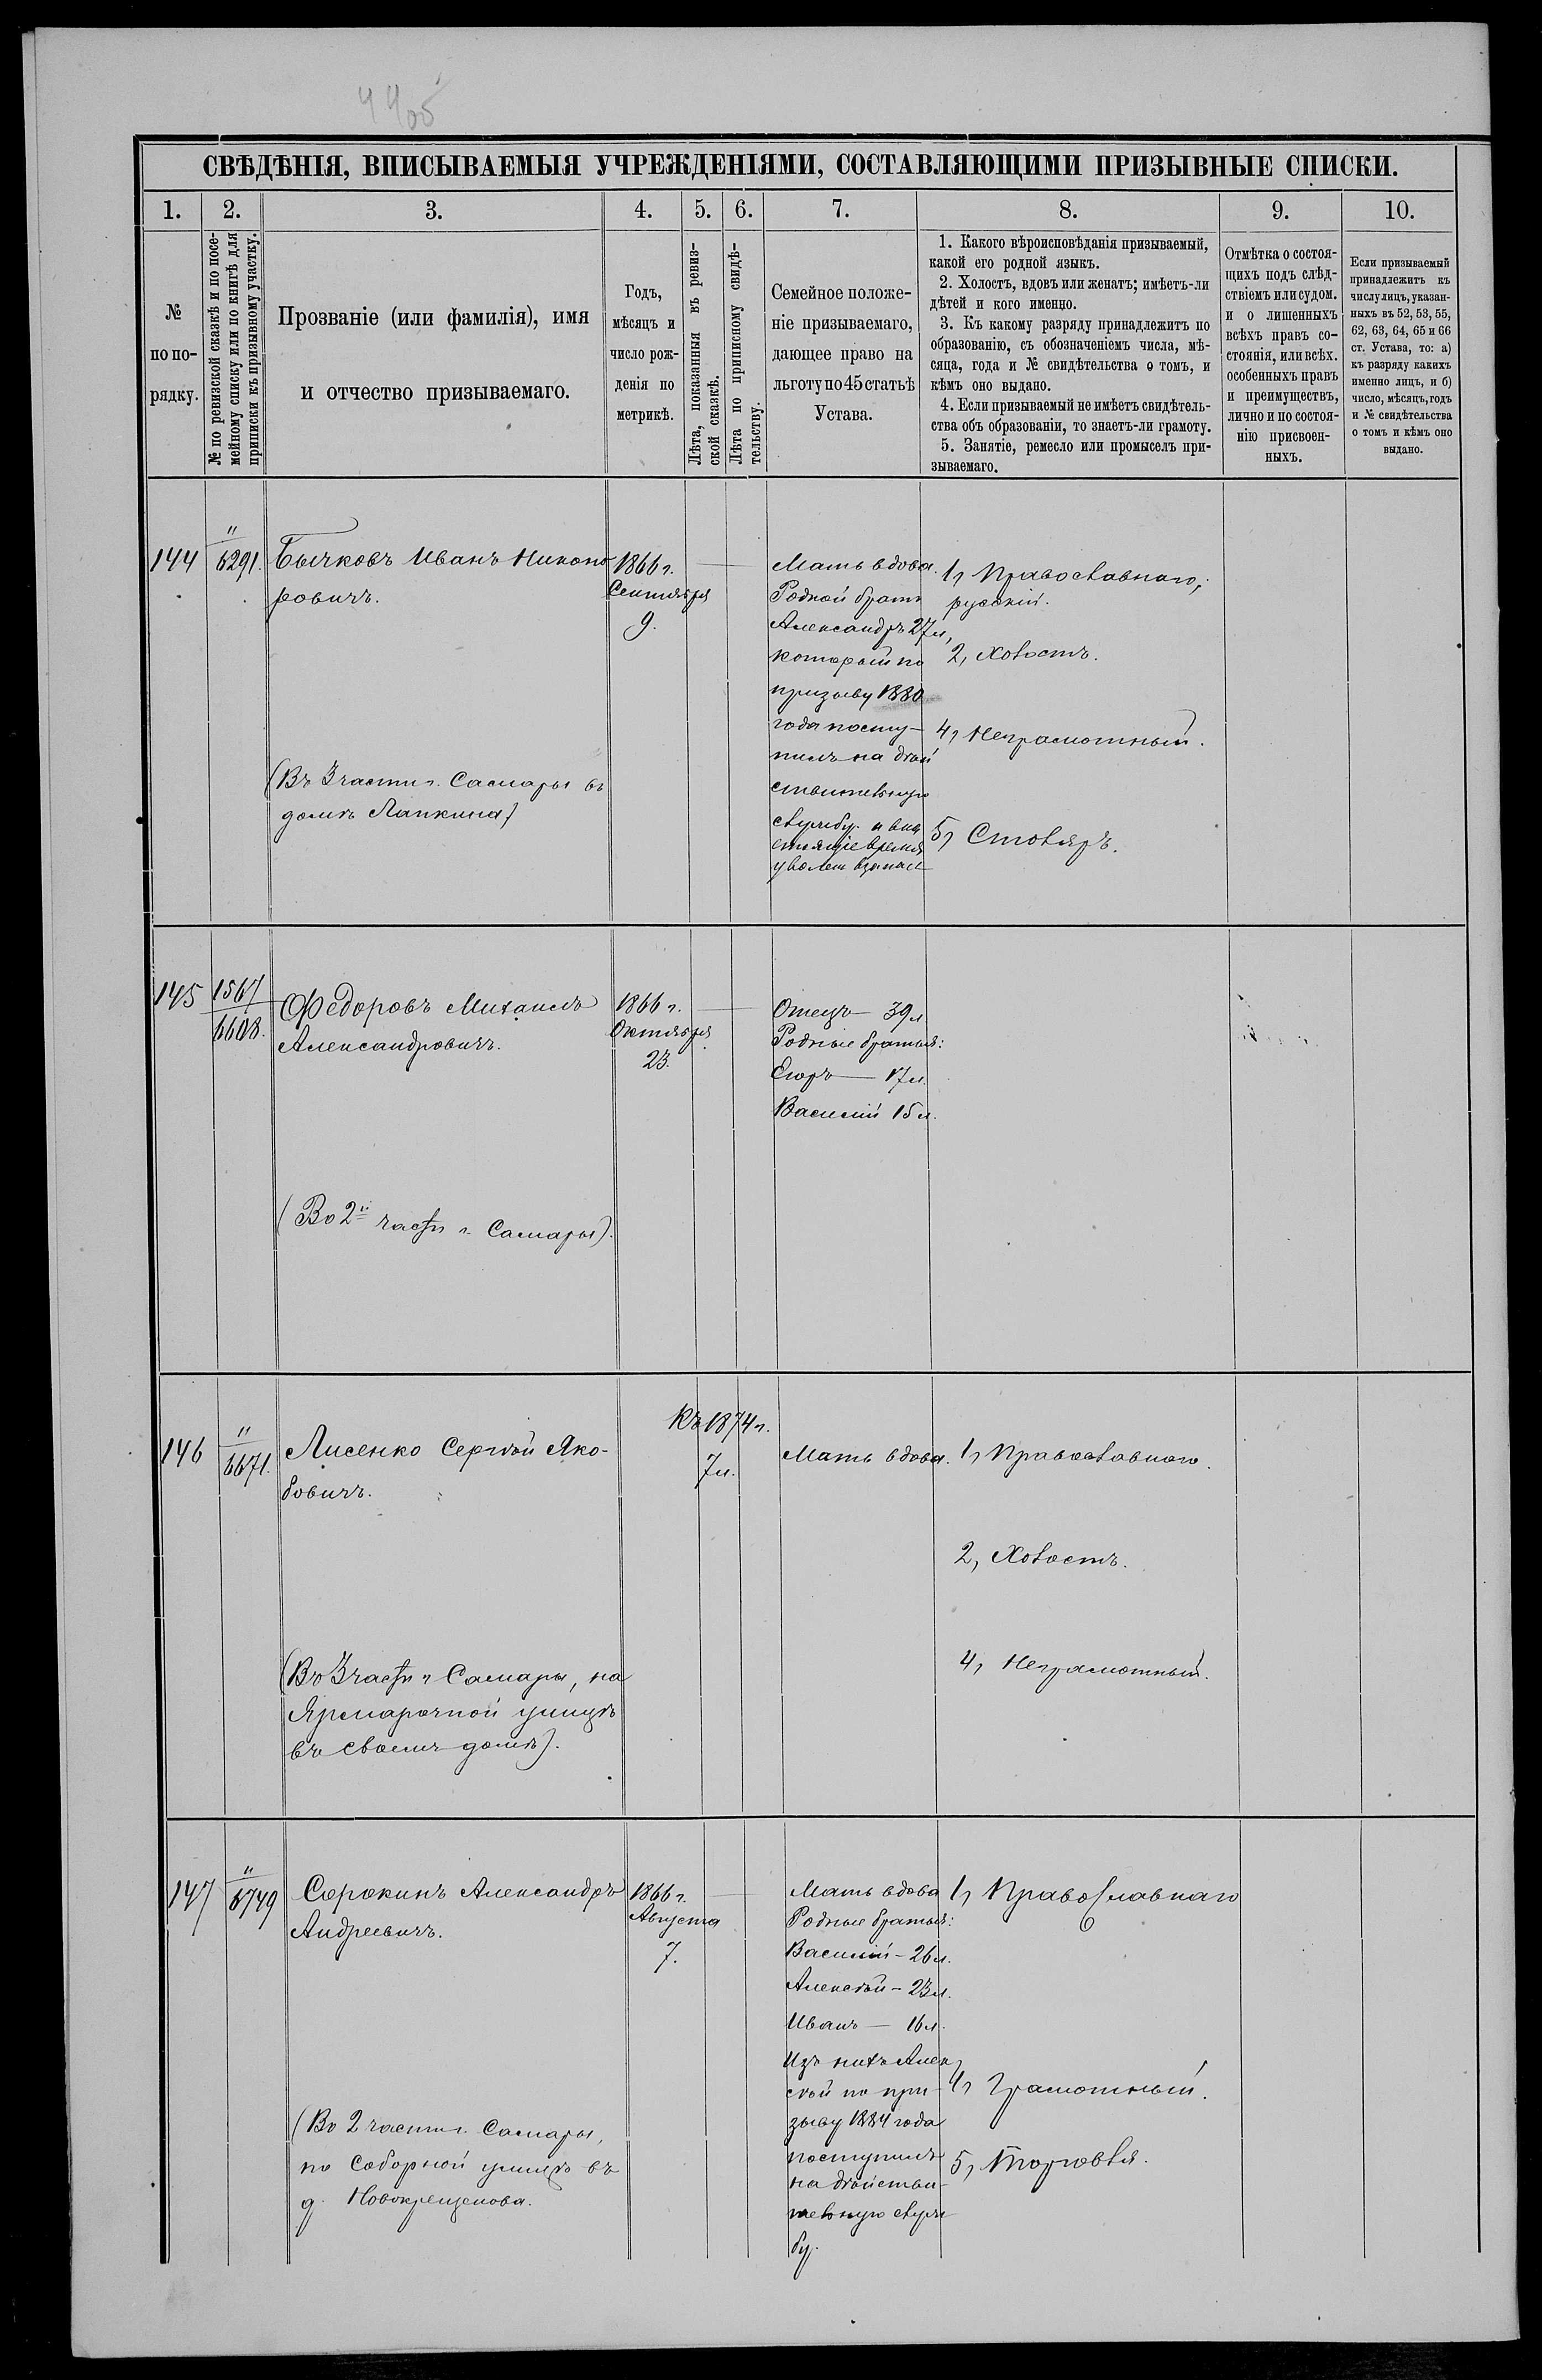 СВѢДѢНІЯ, ВПИСЫВАЕМЫЯ УЧРЕЖДЕНІЯМИ, СОСТАВЛЯЮЩИМИ ПРИЗЫВНЫЕ СПИСКИ.
1. 2. 3. 4. 5. 6. 7. 8. 9. 10.
№
по по-
рядку.
№ по ревизской сказкѣ и по посе-
мейному списку или по книгѣ для
приписки къ призывному участку.
Прозваніе (или фамилія), имя
и отчество призываемаго.
Годъ,
мѣсяцъ и
число рож-
денія по
метрикѣ.
Лѣта, показанныя въ ревиз-
ской сказкѣ.
Лѣта по приписному свидѣ-
тельству.
Семейное положе-
ніе призываемаго,
дающее право на
льготу по 45 статьѣ
Устава.
1. Какого вѣроисповѣданія призываемый,
какой его родной языкъ.
2. Холостъ, вдовъ или женатъ; имѣетъ-ли
дѣтей и кого именно.
3. Къ какому разряду принадлежитъ по
образованію, съ обозначеніемъ числа, мѣ-
сяца, года и № свидѣтельства о томъ, и
кѣмъ оно выдано.
4. Если призываемый не имѣетъ свидѣтель-
ства объ образованіи, то знаетъ-ли грамоту.
5. Занятіе, ремесло или промыселъ при-
зываемаго.
Отмѣтка о состоя-
щихъ подъ слѣд-
ствіемъ или судом.
и о лишенныхъ
всѣхъ правъ со-
стоянія, или всѣх.
особенныхъ правъ
и преимуществъ,
лично и по состоя-
нію присвоен-
ныхъ.
Если призываемый
принадлежитъ къ
числу лицъ, указан-
ныхъ въ 52, 53, 55,
62, 63, 64, 65 и 66
ст. Устава, то: а)
къ разряду какихъ
именно лицъ, и б)
число, мѣсяцъ, годъ
и № свидѣтельства
о томъ и кѣмъ оно
выдано.
144
"
6291.
Бычковъ Иванъ Никано
ровичъ.
(Въ 3 части г. Самары въ
домѣ Лапкина)
1866 г.
Сентября
9.
Мать вдова.
Родной братъ
Александръ 27 л,
который по
призыву 1880
года посту-
пилъ на дѣй
ствительную
службу. и въ на
стоящіе время
уволен в запасъ
1, Православнаго,
русскій.
2, Холостъ.
4, Неграмотный.
5, Столяръ.
145
1567
6608.
Федоровъ Михаилъ
Александровичъ.
(Во 2й части г. Самары).
1866 г.
Октября
23.
Отецъ — 39 л
Родные братья:
Егоръ — 17 л.
Василій 15 л.
146
"
6671.
Лисенко Сергѣй Яко-
вовичъ.
(Въ 3 части г Самары, на
Ярмарочной улицѣ
въ своемъ домѣ).
Къ 1874 г.
7 л.
Мать вдова.
1, Православнаго.
2, Холостъ.
4, Неграмотный.
147
"
6749
Сорокинъ Александръ
Андреевичъ.
(Во 2 части г. Самары,
по Соборной улицѣ въ
д. Новокрещенова.
1866 г.
Августа
7.
Мать вдова
Родные братья:
Василій - 26 л.
Алексѣй - 23 л.
Иванъ — 16 л.
Изъ нихъ Алек
сѣй по при-
зыву 1884 года
поступилъ
на дѣйстви-
тельную служ
бу.
1, Православнаго
4, Грамотный.
5, Торговля.